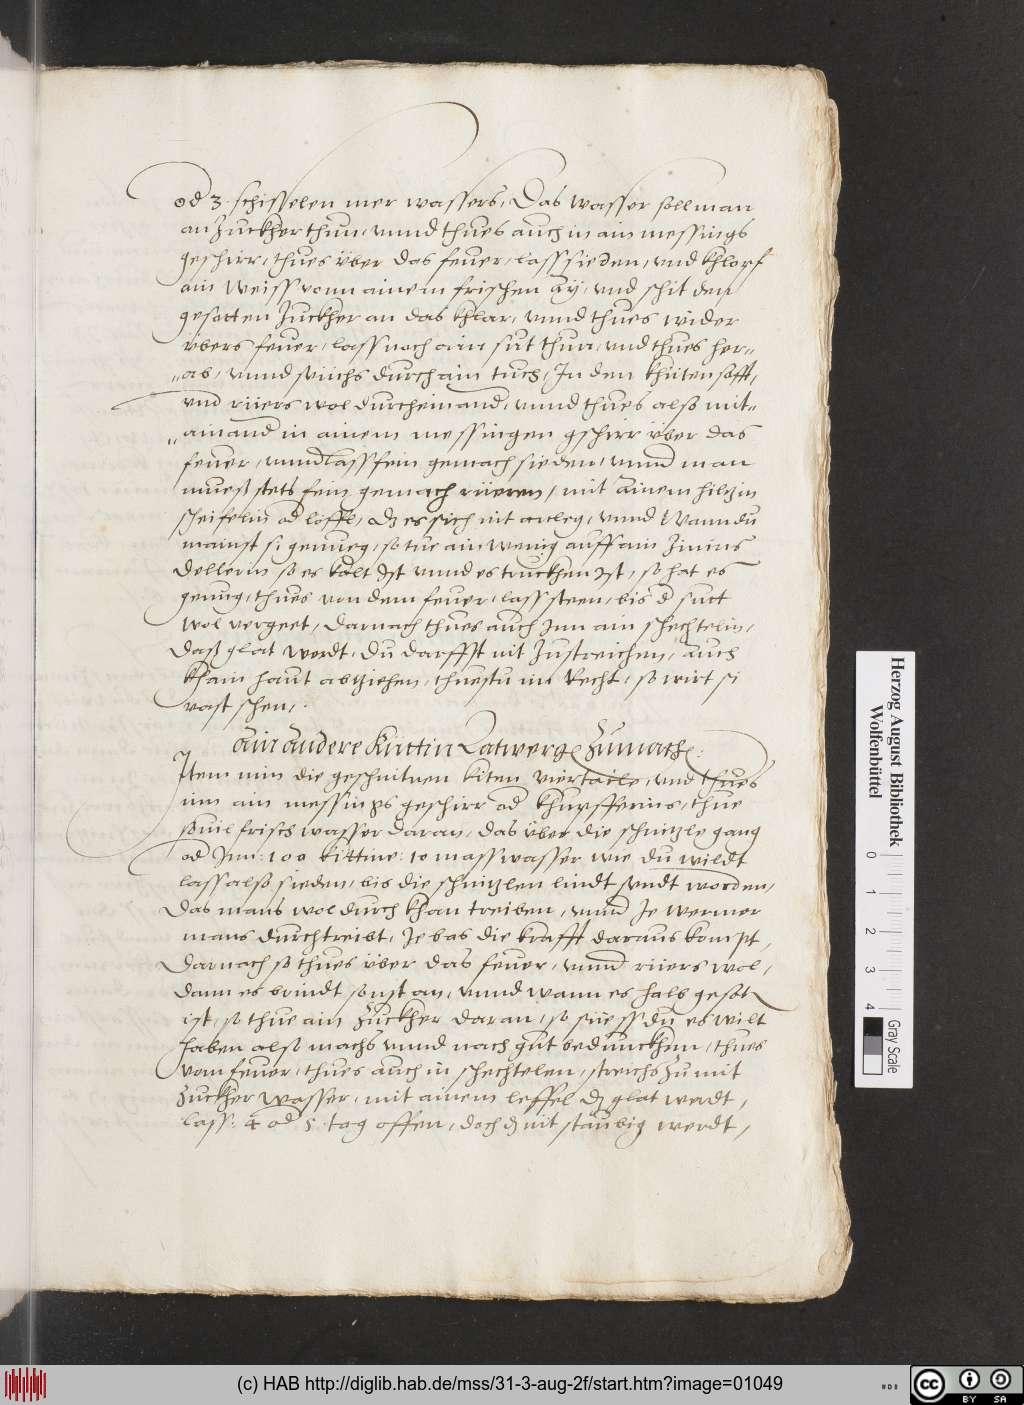 od 3. schisselen mer wassers, Das wasser soll man
an Zuckher thun, vnnd thues auch in ain messings
geschirr, thues über das feuer, lass sieden, vnd khlopf
ain Weiss vonn ainem frischen aÿ, vnd schit den
gesotten Zuckher an das khlar, vnnd thues wider
übers feuer, lass noch ain sut thun, vnd thues her„
„ab, vnnd durch ain tuch, In den khüten safft,
vnd rüers wol durcheinand, vnnd thues also mit„
„ainand in ainem messingen gschirr über das
feuer, vnnd lass fein gemach sieden, vnnd man
mueß stets fein gemach rüeren, mit ainem hiltzin
scheifelin od löffl, dz es sich nit anleg, vnnd Wann du
mainst si genueg, so tue ain wenig auff ain Zinins
dellerin so es kalt Ist vnnd es truckhen Ist, so hat es
genug, thues von dem feuer, lass steen, bis d sutt
wol vergeet, darnach thues auch Inn ain schechtelin,
daß glat werdt, du darffst nit Zustreichen, auch
kham haut abziehen, thuestu im Recht, so wirt si
vast schen,.
Ain andere Küttin Latwerg Zumach.
Item nim die geschnitnen kiten viertaile, vnd thues
inn ain messings geschirr od khupfferins, thue
souil frisch wasser daran, das über die schnitzle gang
od Inn: 100 kittine: 10 mass wasser wie du wildt
lass also sieden, bis die schnitzlen lindt sendt worden,
das mans wol durch khan treiben, vnnd Je wermer
mans durchtreibt, Je bas die krafft daraus kompt,
darnach so thues über das feuer, vnnd rüers wol,
dann es brindt sonst an, vnnd wann es halb gesot
ist, so thue ain Zuckher daran, so süess du es wilt
haben also machs vnnd nach gut bedunckhen, thues
vom feuer, thues auch in schechtelen, streichs Zu mit
Zuckher wasser, mit ainem leffel dz glat werdt,
lass: 4 od 5. tag offen, doch dz nit staubig werdt,
Herzog August Bibliothek
Wolfenbüttel
0 1 2 3 4
Gray Scale
(c) HAB http://diglib.hab.de/mss/31-3-aug-2f/start.htm?image=01049
cc BY SA